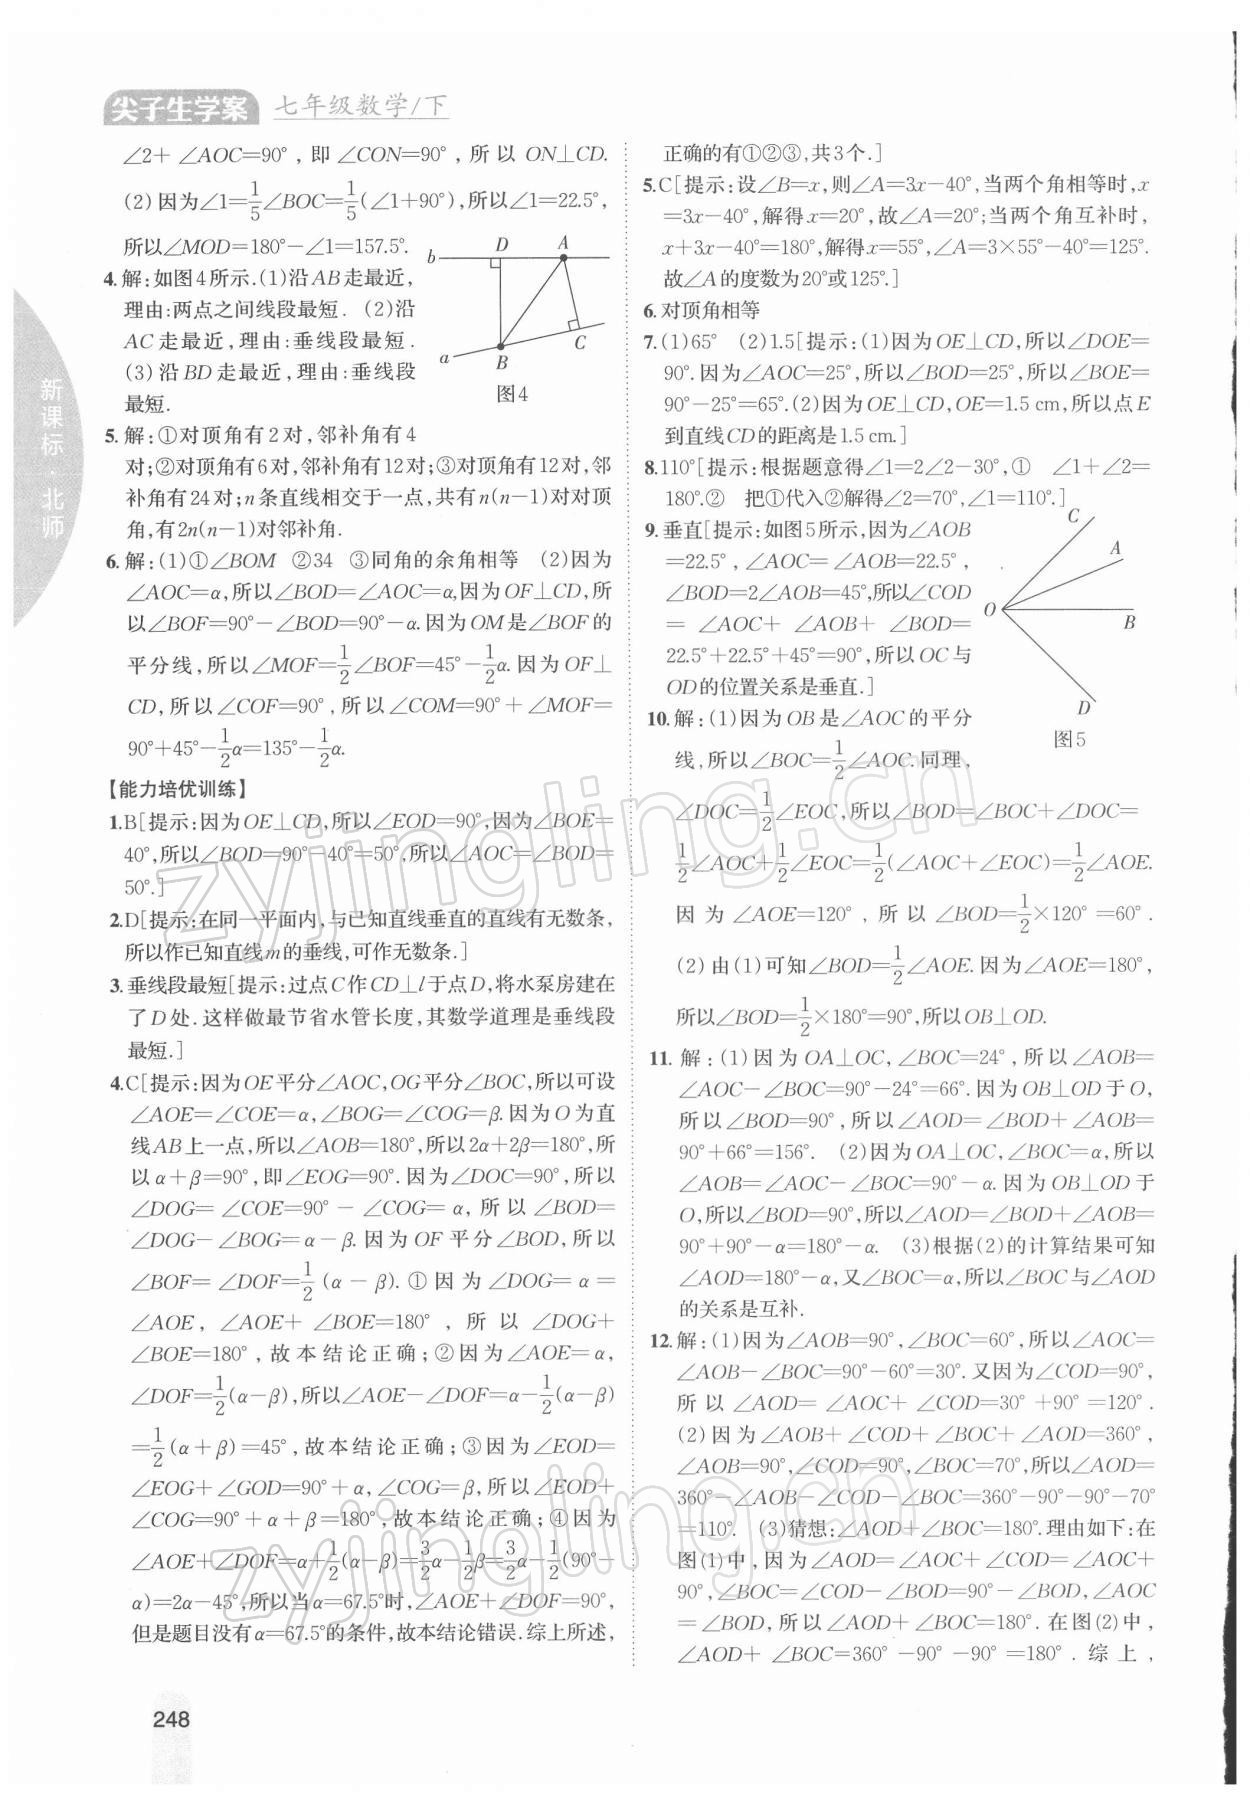 尖子生学案 七年级数学/下
新课标·北师
∠2+∠AOC=90°,即∠CON=90°,所以ON⊥CD.
(2)因为∠1=1/5∠BOC=1/5(∠1+90°),所以∠1=22.5°,
所以∠MOD=180°-∠1=157.5°.
4.解:如图4所示.(1)沿AB走最近,
理由:两点之间线段最短. (2)沿
AC走最近,理由:垂线段最短.
(3)沿BD走最近,理由:垂线段
最短.
b D A
a B C
图4
5.解:①对顶角有2对,邻补角有4
对;②对顶角有6对,邻补角有12对;③对顶角有12对,邻
补角有24对;n条直线相交于一点,共有n(n-1)对对顶
角,有2n(n-1)对邻补角.
6.解:(1)①∠BOM ②34 ③同角的余角相等 (2)因为
∠AOC=α,所以∠BOD=∠AOC=α,因为OF⊥CD,所
以∠BOF=90°-∠BOD=90°-α.因为OM是∠BOF的
平分线,所以∠MOF=1/2∠BOF=45°-1/2α.因为OF⊥
CD,所以∠COF=90°,所以∠COM=90°+∠MOF=
90°+45°-1/2α=135°-1/2α.
【能力培优训练】
1.B[提示:因为OE⊥CD,所以∠EOD=90°,因为∠BOE=
40°,所以∠BOD=90°-40°=50°,所以∠AOC=∠BOD=
50°.]
2.D[提示:在同一平面内,与已知直线垂直的直线有无数条,
所以作已知直线m的垂线,可作无数条.]
3.垂线段最短[提示:过点C作CD⊥l于点D,将水泵房建在
了D处.这样做最节省水管长度,其数学道理是垂线段
最短.]
4.C[提示:因为OE平分∠AOC,OG平分∠BOC,所以可设
∠AOE=∠COE=α,∠BOG=∠COG=β.因为O为直
线AB上一点,所以∠AOB=180°,所以2α+2β=180°,所
以α+β=90°,即∠EOG=90°.因为∠DOC=90°,所以
∠DOG=∠COE=90°-∠COG=α,所以∠BOD=
∠DOG-∠BOG=α-β.因为OF平分∠BOD,所以
∠BOF=∠DOF=1/2(α-β).①因为∠DOG=α=
∠AOE,∠AOE+∠BOE=180°,所以∠DOG+
∠BOE=180°,故本结论正确;②因为∠AOE=α,
∠DOF=1/2(α-β),所以∠AOE-∠DOF=α-1/2(α-β)
=1/2(α+β)=45°,故本结论正确;③因为∠EOD=
∠EOG+∠GOD=90°+α,∠COG=β,所以∠EOD+
∠COG=90°+α+β=180°,故本结论正确;④因为
∠AOE+∠DOF=α+1/2(α-β)=3/2α-1/2β=3/2α-1/2(90°-
α)=2α-45°,所以当α=67.5°时,∠AOE+∠DOF=90°,
但是题目没有α=67.5°的条件,故本结论错误.综上所述,
正确的有①②③,共3个.]
5.C[提示:设∠B=x,则∠A=3x-40°,当两个角相等时,x
=3x-40°,解得x=20°,故∠A=20°;当两个角互补时,
x+3x-40°=180°,解得x=55°,∠A=3×55°-40°=125°.
故∠A的度数为20°或125°.]
6.对顶角相等
7.(1)65° (2)1.5[提示:(1)因为OE⊥CD,所以∠DOE=
90°.因为∠AOC=25°,所以∠BOD=25°,所以∠BOE=
90°-25°=65°.(2)因为OE⊥CD,OE=1.5 cm,所以点E
到直线CD的距离是1.5 cm.]
8.110°[提示:根据题意得∠1=2∠2-30°,① ∠1+∠2=
180°.② 把①代入②解得∠2=70°,∠1=110°.]
9.垂直[提示:如图5所示,因为∠AOB
=22.5°,∠AOC=∠AOB=22.5°,
∠BOD=2∠AOB=45°,所以∠COD
=∠AOC+∠AOB+∠BOD=
22.5°+22.5°+45°=90°,所以OC与
OD的位置关系是垂直.]
C
A
O
B
D
图5
10.解:(1)因为OB是∠AOC的平分
线,所以∠BOC=1/2∠AOC.同理,
∠DOC=1/2∠EOC,所以∠BOD=∠BOC+∠DOC=
1/2∠AOC+1/2∠EOC=1/2(∠AOC+∠EOC)=1/2∠AOE.
因为∠AOE=120°,所以∠BOD=1/2×120°=60°.
(2)由(1)可知∠BOD=1/2∠AOE.因为∠AOE=180°,
所以∠BOD=1/2×180°=90°,所以OB⊥OD.
11.解:(1)因为OA⊥OC,∠BOC=24°,所以∠AOB=
∠AOC-∠BOC=90°-24°=66°.因为OB⊥OD于O,
所以∠BOD=90°,所以∠AOD=∠BOD+∠AOB=
90°+66°=156°. (2)因为OA⊥OC,∠BOC=α,所以
∠AOB=∠AOC-∠BOC=90°-α.因为OB⊥OD于
O,所以∠BOD=90°,所以∠AOD=∠BOD+∠AOB=
90°+90°-α=180°-α. (3)根据(2)的计算结果可知
∠AOD=180°-α,又∠BOC=α,所以∠BOC与∠AOD
的关系是互补.
12.解:(1)因为∠AOB=90°,∠BOC=60°,所以∠AOC=
∠AOB-∠BOC=90°-60°=30°.又因为∠COD=90°,
所以∠AOD=∠AOC+∠COD=30°+90°=120°.
(2)因为∠AOB+∠COD+∠BOC+∠AOD=360°,
∠AOB=90°,∠COD=90°,∠BOC=70°,所以∠AOD=
360°-∠AOB-∠COD-∠BOC=360°-90°-90°-70°
=110°. (3)猜想:∠AOD+∠BOC=180°.理由如下:在
图(1)中,因为∠AOD=∠AOC+∠COD=∠AOC+
90°,∠BOC=∠COD-∠BOD=90°-∠BOD,∠AOC
=∠BOD,所以∠AOD+∠BOC=180°.在图(2)中,
∠AOD+∠BOC=360°-90°-90°=180°.综上,
248
zyjingling.cn
zyjingling.cn